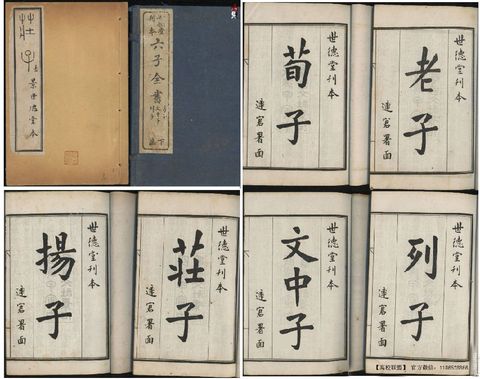 莊子
景世德堂本
六子全書
世德堂刊本
荀子
署面
世德堂刊本
老子
署面
世德堂刊本
揚子
署面
世德堂刊本
莊子
署面
世德堂刊本
文中子
署面
世德堂刊本
列子
署面
官方微信: